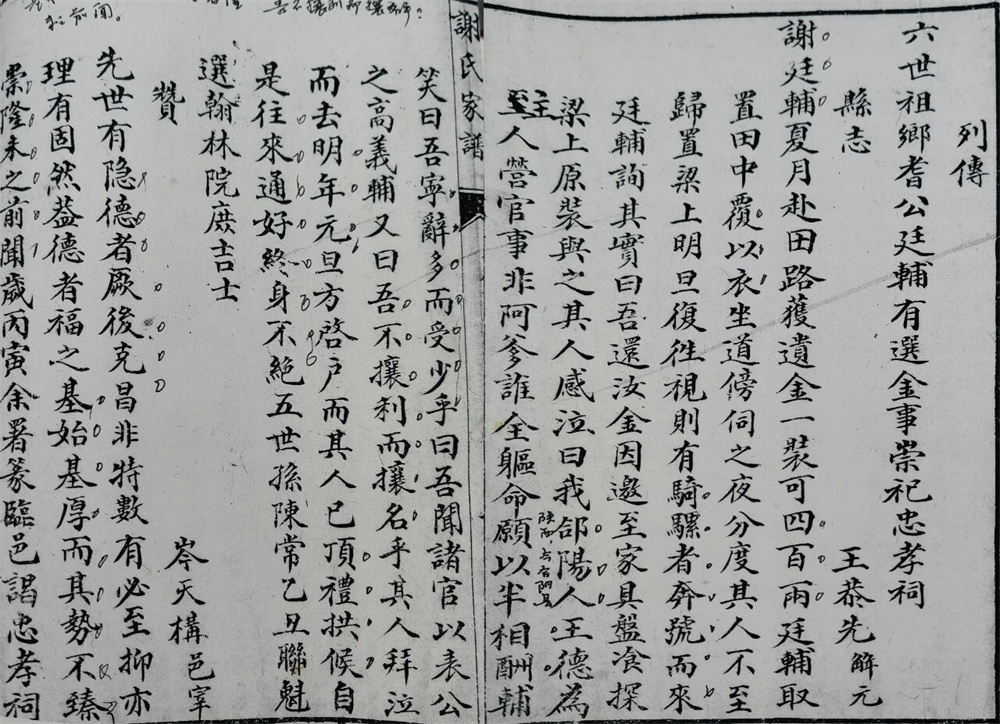 列傳
六世祖鄉耆公廷輔有還金事崇祀忠孝祠
縣志 王恭先解元
謝廷輔夏月赴田路獲遺金一裝可四百兩廷輔取
置田中覆以衣坐道傍伺之夜分度其人不至
歸置梁上明旦復徃視則有騎騾者奔號而來
廷輔詢其實曰吾還汝金因邀至家具盤飡探
梁上原裝與之其人感泣曰我郃陽人王德為
主人營官事非阿爹誰全軀命願以半相酬輔
陝西
謝氏家譜
笑曰吾寧辭多而受少乎曰吾聞諸官以表公
之高義輔又曰吾不攘利而攘名乎其人拜泣
而去明年元旦方啓户而其人已頂禮拱候自
是往來通好終身不絕五世孫陳常乙丑聯魁
選翰林院庶吉士
贊 岑天構邑宰
先世有隐德者厥後克昌非特數有必至抑亦
理有固然葢德者福之基始基厚而其勢不臻
崇隆未之前聞歲丙寅余署篆臨邑謁忠孝祠